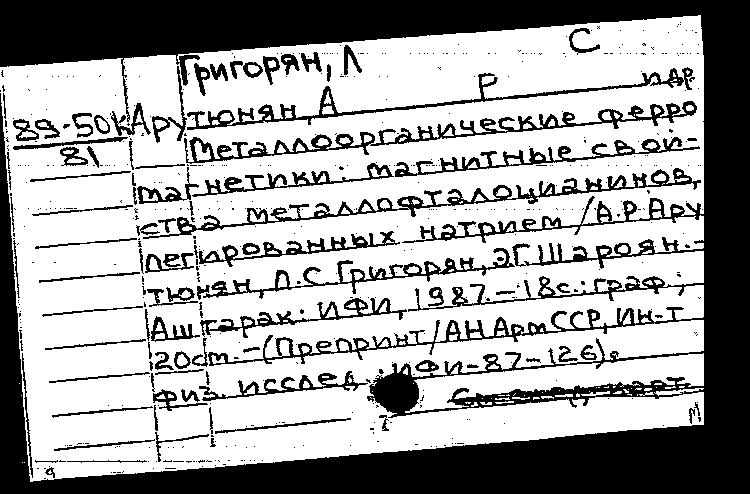 Григорян, Л С
89-50к Арутюнян, А Р и др.
81
Металлоорганические ферро
магнетики: магнитные свой-
ства металлофталоцианинов,
легированных натрием /А.Р.Ару
тюнян, Л.С. Григорян, Э.Г. Шароян.-
Аштарак: ИФИ, 1987.-18с.: граф.;
20cm.-(Препринт/АН АрмССР, Ин-т
физ. исслед.; ИФИ-87-126).